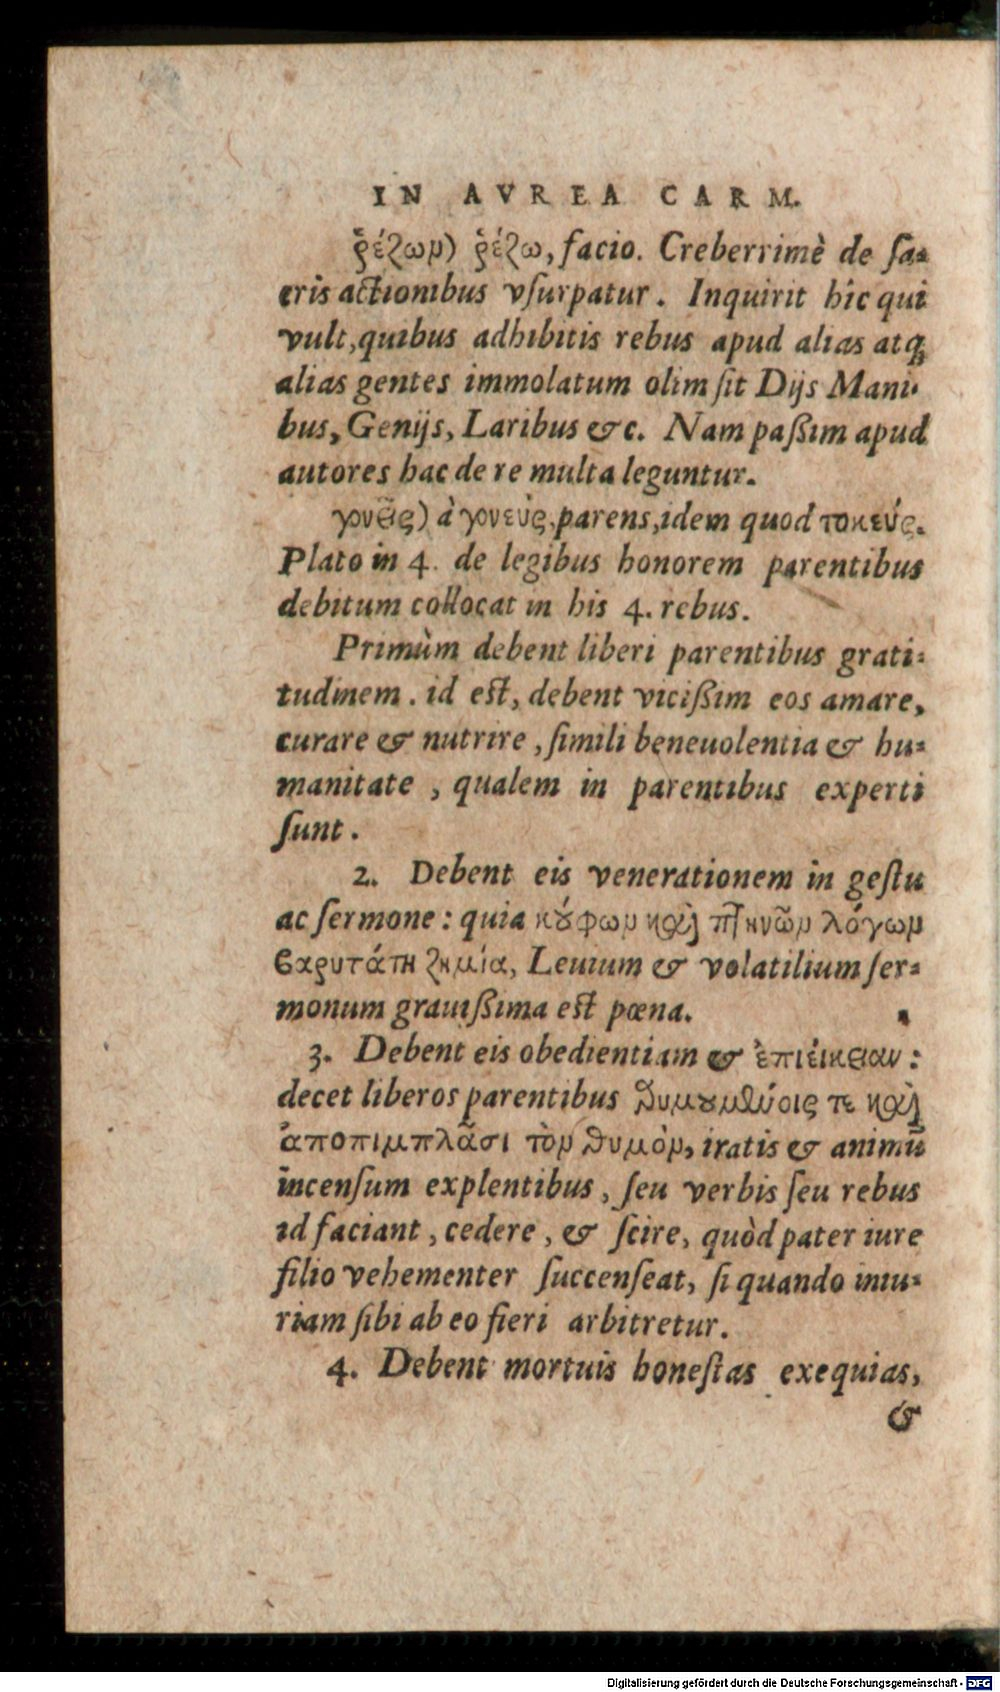 IN AVREA CARM.
ῥέζων) ῥέζω, facio. Creberrimè de ſa-
cris actionibus vſurpatur. Inquirit hîc qui
vult, quibus adhibitis rebus apud alias atq;
alias gentes immolatum olim ſit Dijs Mani-
bus, Genijs, Laribus &c. Nam paßim apud
autores hac de re multa leguntur.
γονεῖς) à γονεύς, parens, idem quod τοκεύς.
Plato in 4. de legibus honorem parentibus
debitum collocat in his 4. rebus.
Primùm debent liberi parentibus grati-
tudinem. id eſt, debent vicißim eos amare,
curare & nutrire, ſimili beneuolentia & hu-
manitate, qualem in parentibus experti
ſunt.
2. Debent eis venerationem in geſtu
ac ſermone: quia κούφων καὶ πτηνῶν λόγων
βαρυτάτη ζημία, Leuium & volatilium ſer-
monum grauißima eſt pœna.
3. Debent eis obedientiam & ἐπιείκειαν:
decet liberos parentibus θυμουμένοις τε καὶ
ἀποπιμπλᾶσι τὸν θυμὸν, iratis & animū
incenſum explentibus, ſeu verbis ſeu rebus
id faciant, cedere, & ſcire, quòd pater iure
filio vehementer ſuccenſeat, ſi quando iniu-
riam ſibi ab eo fieri arbitretur.
4. Debent mortuis honeſtas exequias,
&
Digitalisierung gefördert durch die Deutsche Forschungsgemeinschaft - DFG